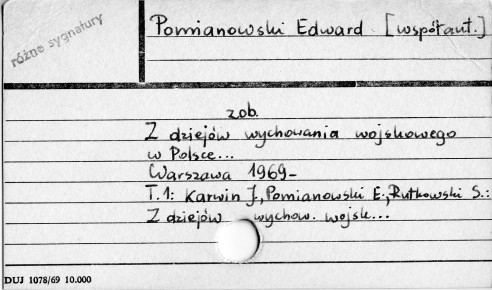 różne sygnatury
Pomianowski Edward [współaut.]
zob.
Z dziejów wychowania wojskowego
w Polsce...
Warszawa 1969-
T.1: Karwin J., Pomianowski E., Rutkowski S.:
Z dziejów wychow. wojsk...
DUJ 1078/69 10.000